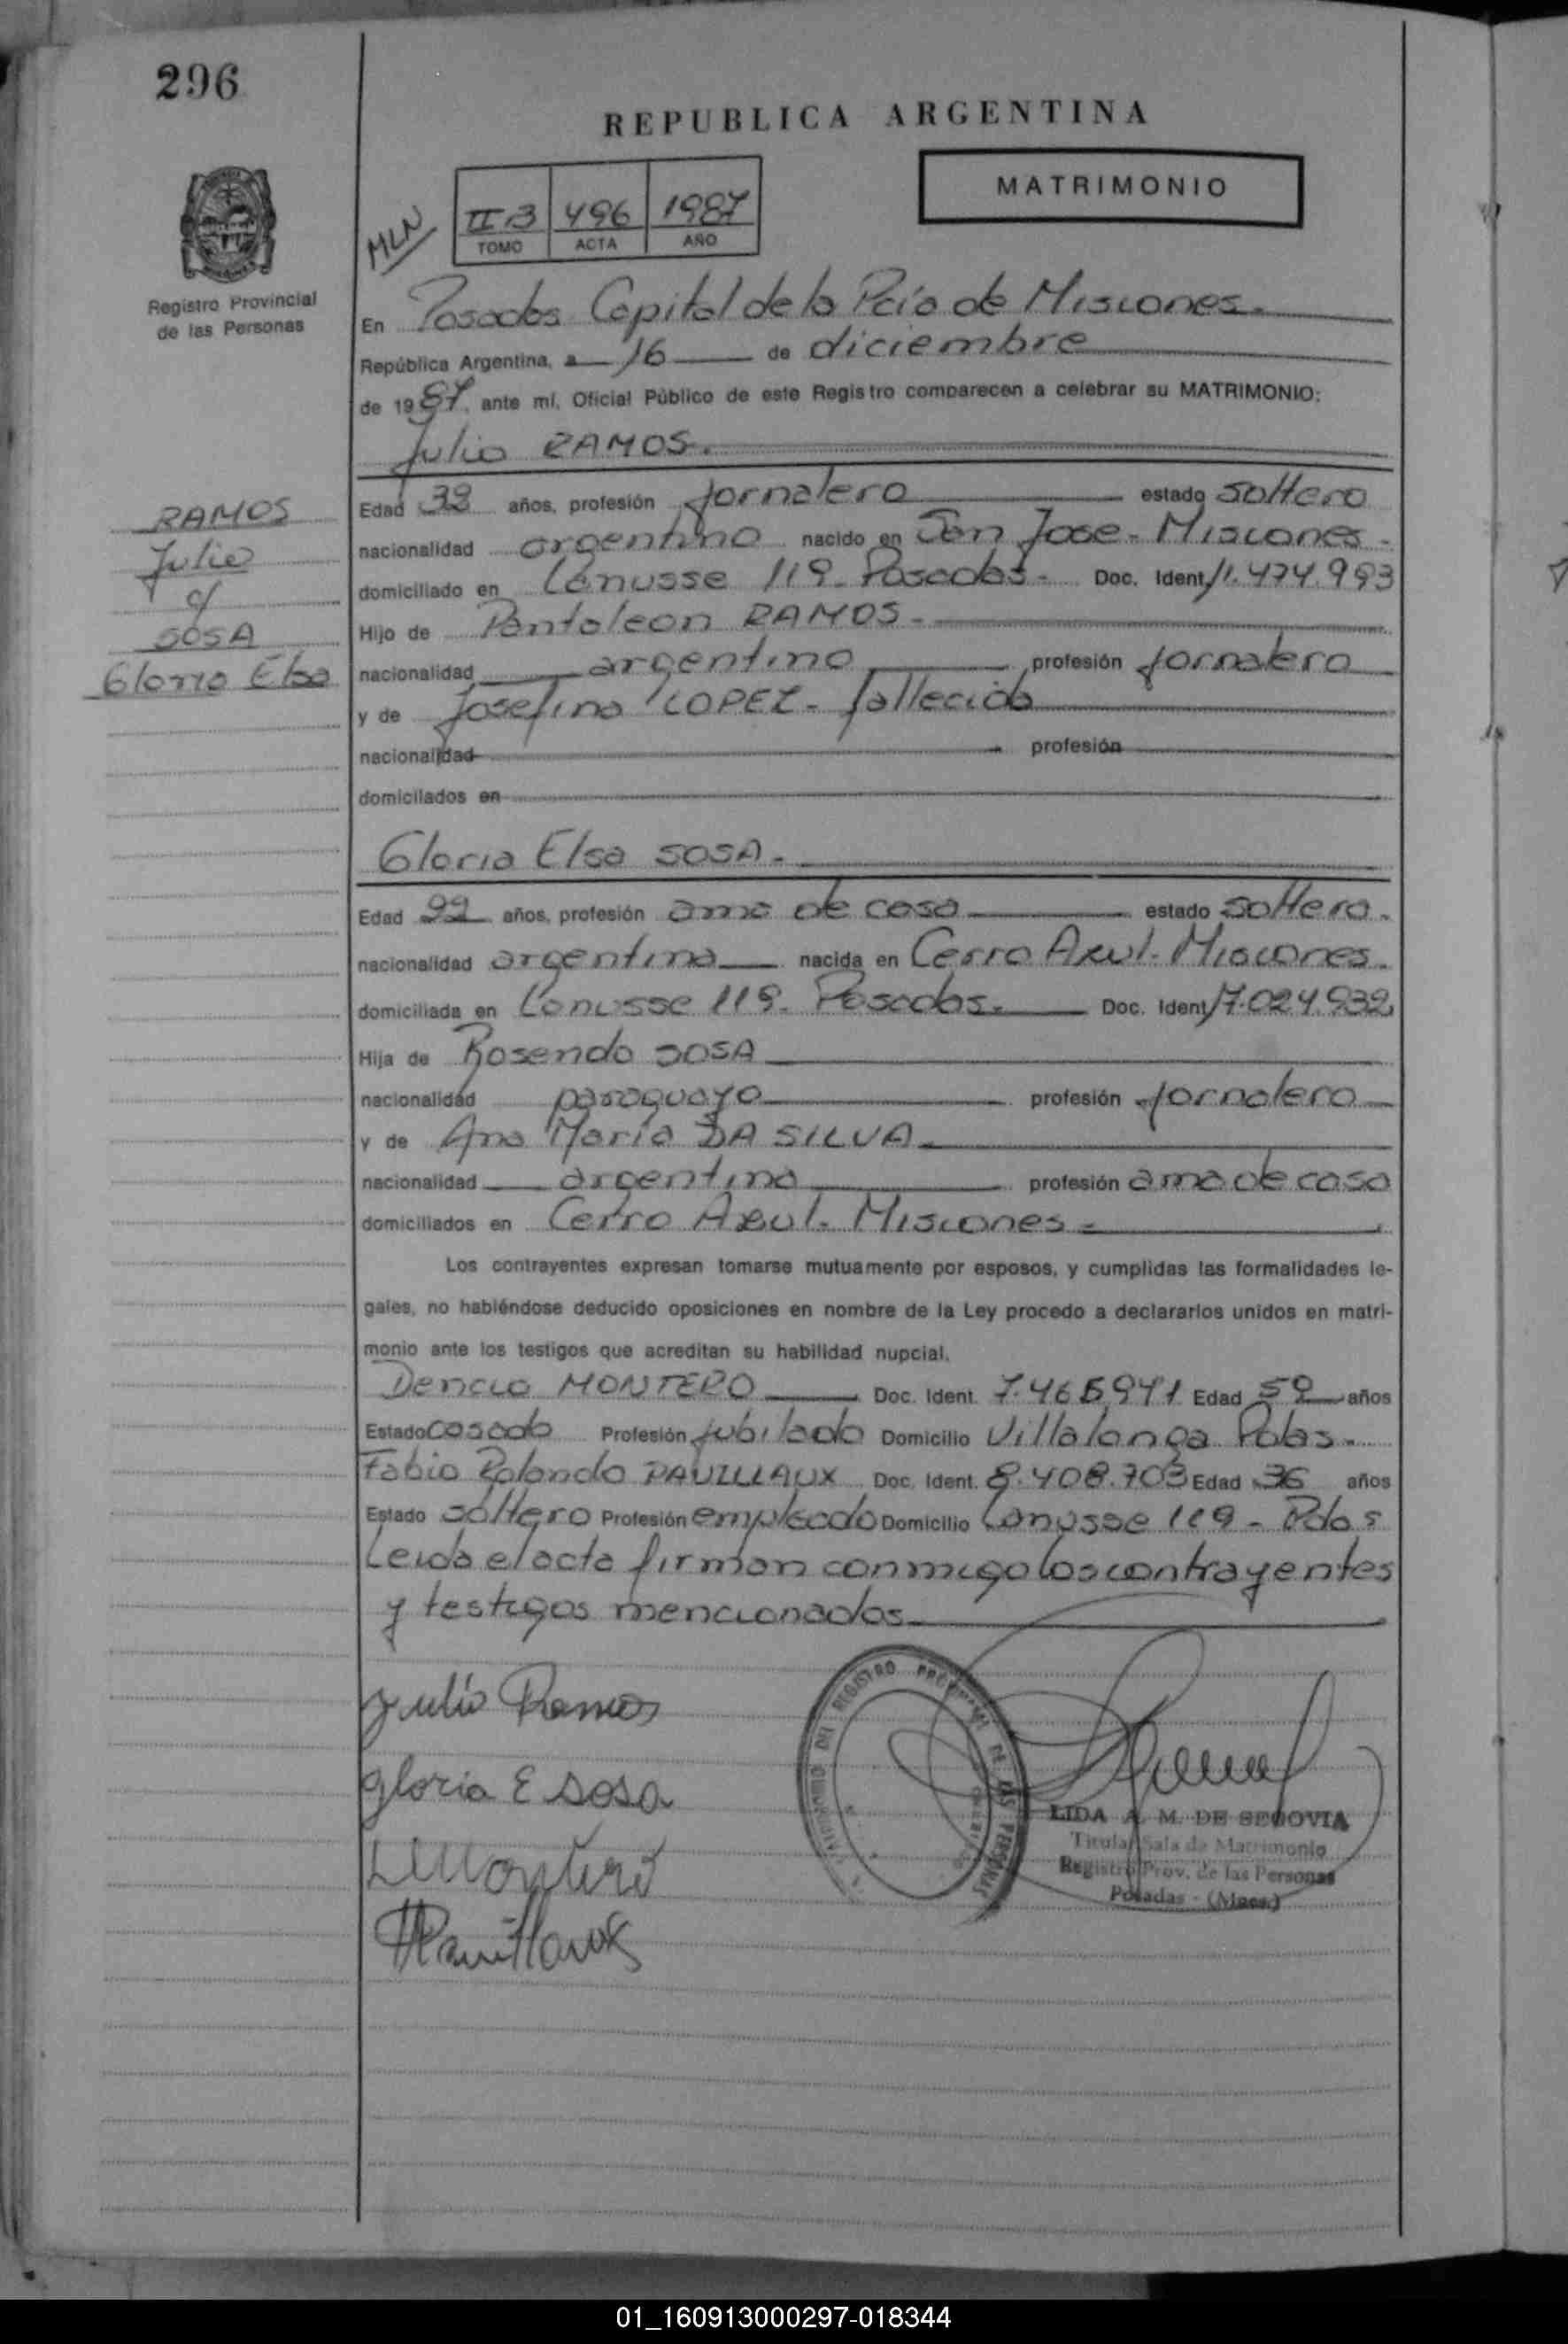 296
REPUBLICA ARGENTINA
MATRIMONIO
MLN
II.B 496 1987
TOMO ACTA AÑO
Registro Provincial
de las Personas
En Posadas Capital de la Pcia de Misiones.
República Argentina, a 16 de diciembre
de 1987, ante mí, Oficial Público de este Registro comparecen a celebrar su MATRIMONIO:
Julio RAMOS.
RAMOS
Julio
c/
SOSA
Gloria Elsa
Edad años, profesión Jornalero estado soltero
nacionalidad argentino nacido en San Jose - Misiones.
domiciliado en Lanusse 119. Posadas. Doc. Ident. 11.474.993
Hijo de Pantaleon RAMOS.
nacionalidad argentino profesión Jornalero
y de Josefina LOPEZ - fallecida
nacionalidad profesión
domicilados en
Gloria Elsa SOSA.
Edad 22 años, profesión ama de casa estado soltera.
nacionalidad argentina nacida en Cerro Azul. Misiones.
domiciliada en Lanusse 119. Posadas. Doc. Ident. 17.024.932
Hija de Rosendo SOSA
nacionalidad paraguayo profesión Jornalero
y de Ana María DA SILVA.
nacionalidad argentina profesión ama de casa
domiciliados en Cerro Azul. Misiones.
Los contrayentes expresan tomarse mutuamente por esposos, y cumplidas las formalidades le-
gales, no habiéndose deducido oposiciones en nombre de la Ley procedo a declararlos unidos en matri-
monio ante los testigos que acreditan su habilidad nupcial.
MONTERO Doc. Ident. 7.465.941 Edad 59 años
Estado casado Profesión jubilado Domicilio Villalonga Pdas.
Fabio Rolando PAUILLAUX Doc. Ident. 8.408.703 Edad 36 años
Estado soltero Profesión empleado Domicilio Lanusse 119 - Pdas
Leida el acta firman conmigo los contrayentes
y testigos mencionados
Julio Ramos
Gloria E Sosa
LMontero
Pauillaux
DEL REGISTRO PROVINCIAL DE LAS PERSONAS
LIDA A. M. DE SEGOVIA
Titular Sala de Matrimonio
Registro Prov. de las Personas
Posadas - (Mnes.)
01_160913000297-018344